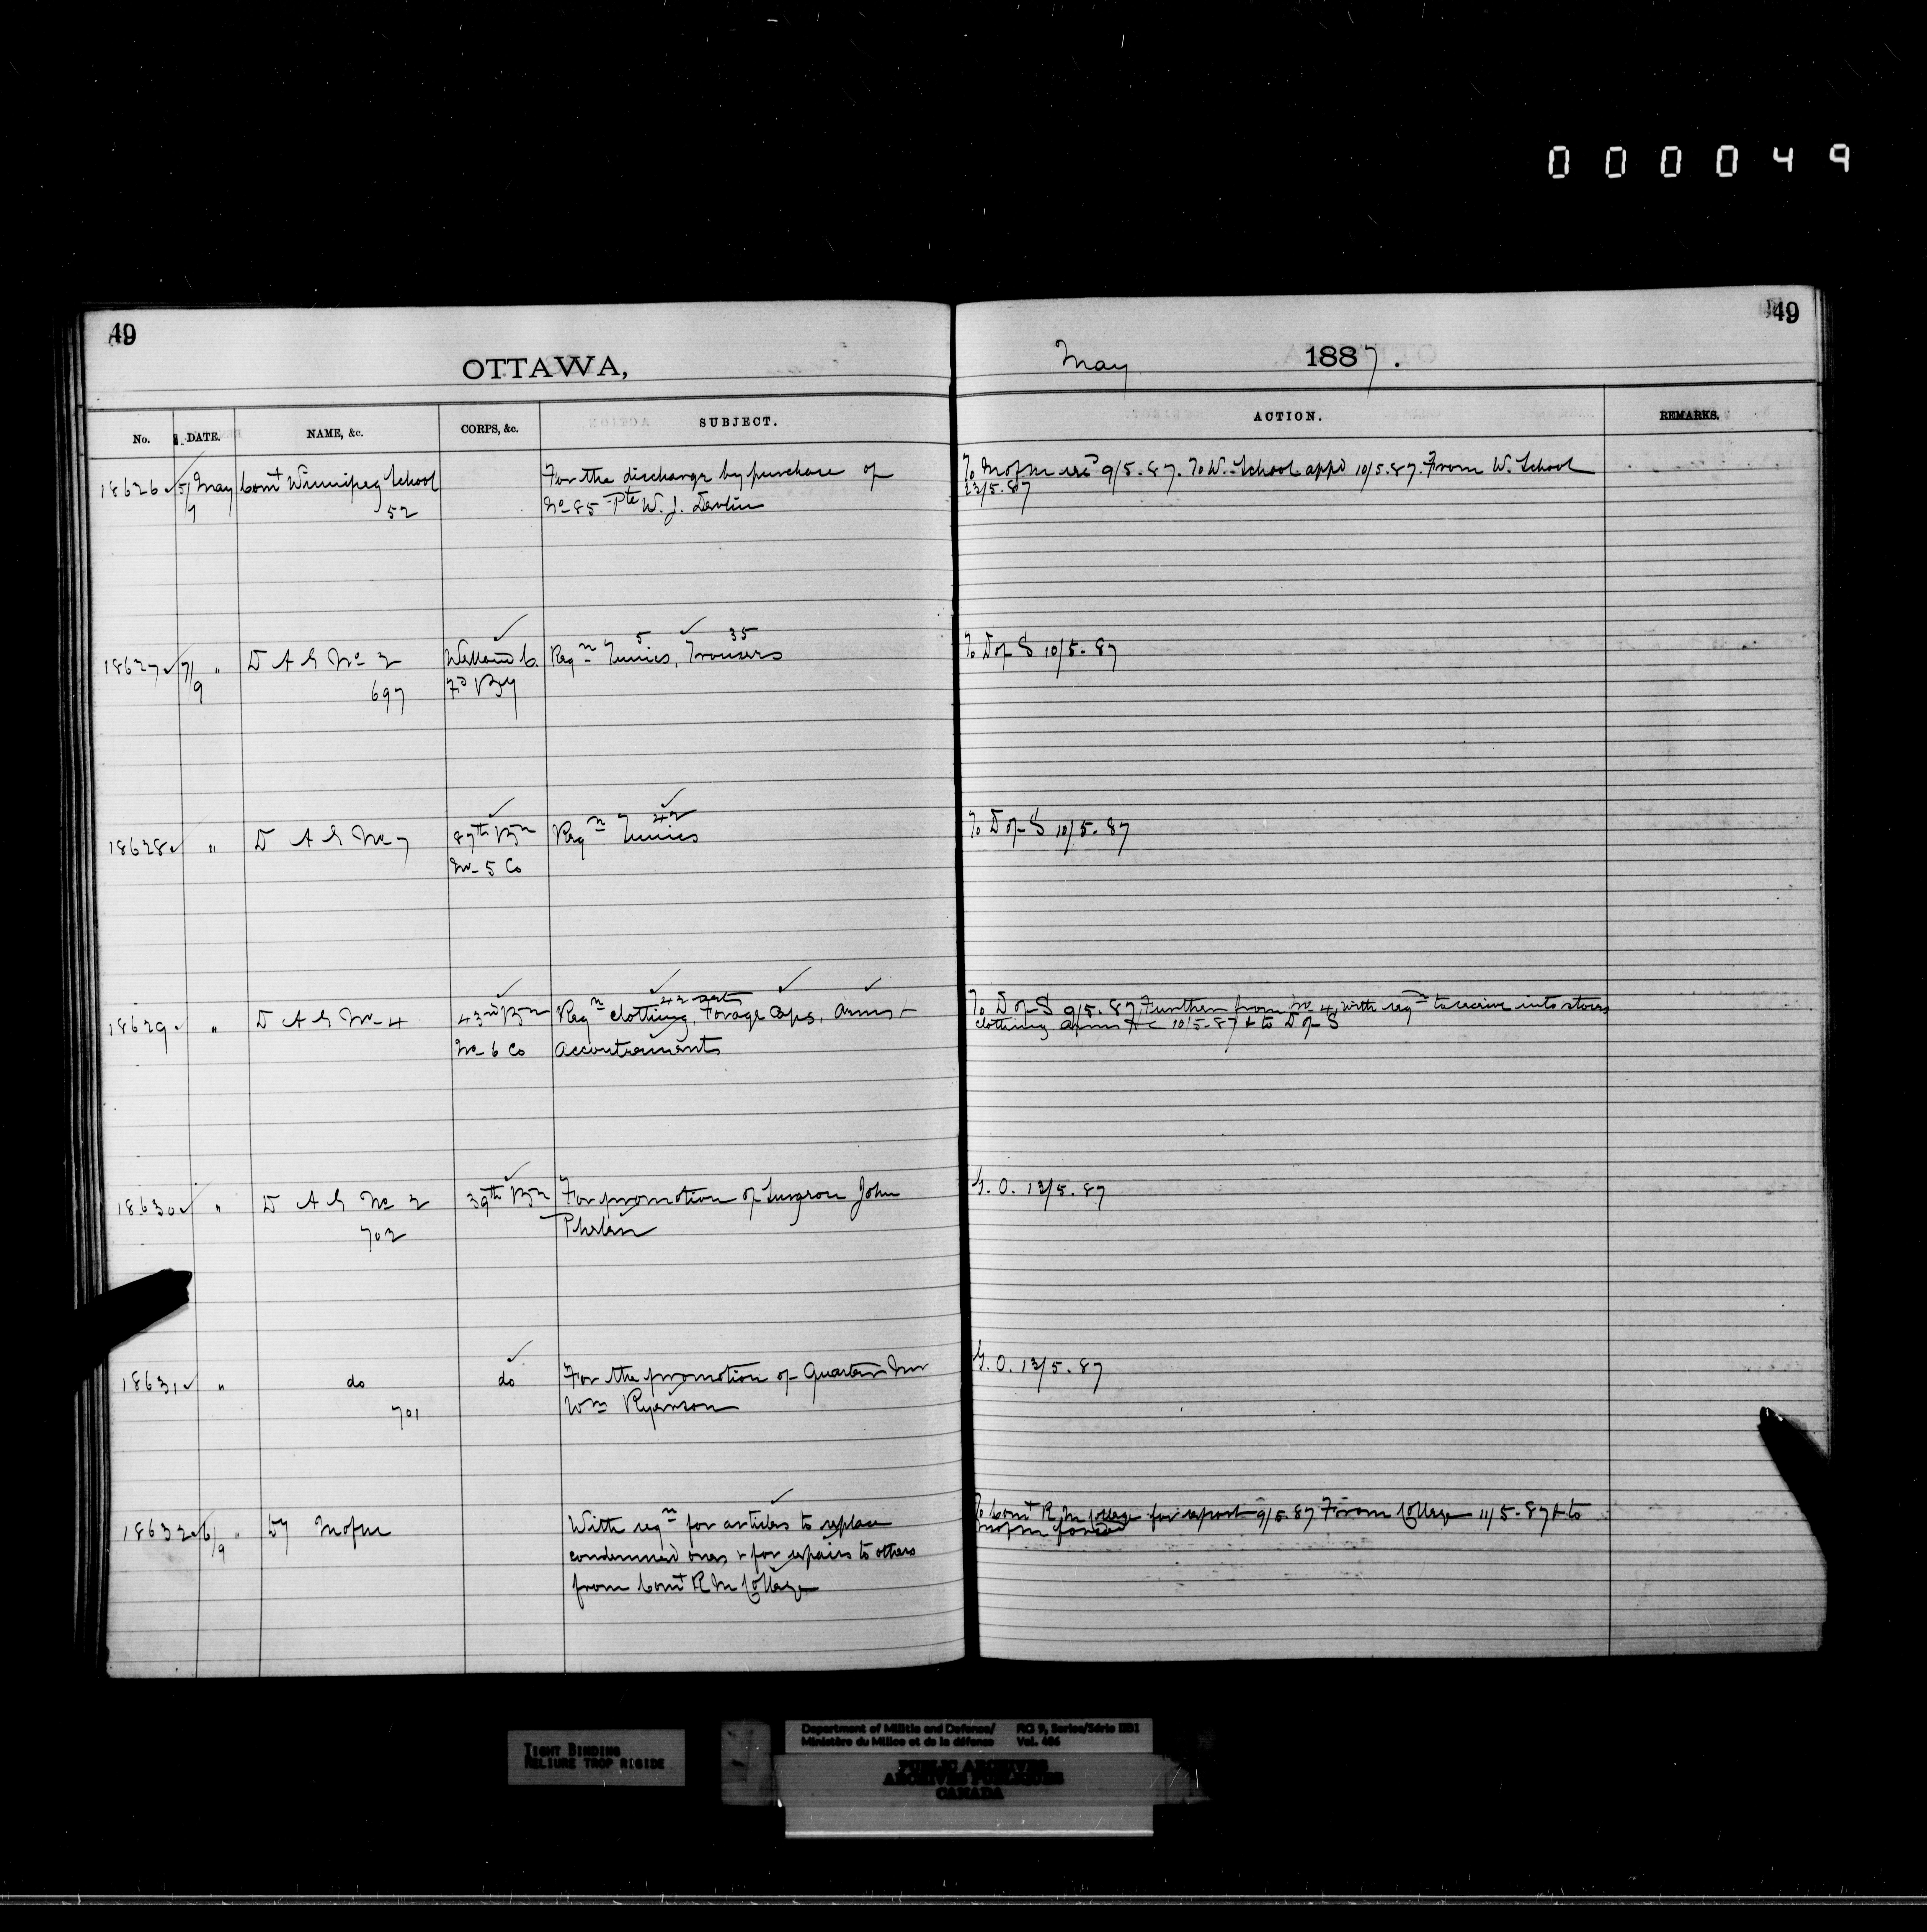 000049
49
49
OTTAWA,
May 1887.
No. DATE. NAME, &c. CORPS, &c. SUBJECT. ACTION. REMARKS.
18626 5/9 May Comt Winnipeg School For the discharge by purchase of
52 No 85 Pte W. J. Devlin
To Mofm 9/5.87. To W. School appd 10/5.87. From W. School
23/5.87
18627 7/9 " D A G No 2 Welland C. Reqn 5 Tunics, 35 Trousers
697 Fd By
To D of S 10/5.87
18628 " D A G No 7 87th Bn Reqn 42 Tunics
No 5 Co
To D of S 10/5.87
18629 " D A G No 4 43rd Bn Reqn clothing, 42 sets Forage Caps, Arms +
No 6 Co Accoutrements
To D of S 9/5.87 Further from No 4, with reqn to receive into stores
clothing arms &c 10/5.87 + to D of S
18630 " D A G No 2 39th Bn For promotion of Surgeon John
702 Phelan
G.O. 13/5.87
18631 " do do For the promotion of Quarter Mr
701 Wm Ryerson
G.O. 13/5.87
18632 6/9 " Dy Mofm With reqn for articles to replace
condemned ones + for repairs to others
from Comt R M College
To Comt R. M College for report 9/5.87 From College 11/5.87 + to
Mofm
TIGHT BINDING
RELIURE TROP RIGIDE
Department of Militia and Defence/
Ministère du Milice et de la défense
RG 9, Series/Série IIB1
Vol. 406
PUBLIC ARCHIVES
ARCHIVES PUBLIQUES
CANADA